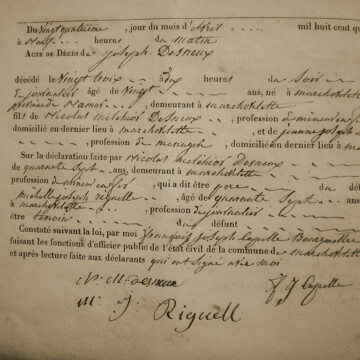 Du vingt quatrième, jour du mois d'Avril mil huit cent qu
à Neuf heures du matin
ACTE DE DÉCÈS de Joseph Desneux
décédé le vingt trois à dix heures du Soir
de journalier âgé de vingt ans, né à marchovelette
province de Namur, demeurant à marchovelette
fils de Nicolas melchior Desneux, profession de mineur en fer
domicilié en dernier lieu à marchovelette et de jeanne joseph
, profession de menagère, domiciliée en dernier lieu à ma
Sur la déclaration faite par Nicolas melchior Desneux
de quarante Sept ans, demeurant à marchovelette
profession de mineur en fer qui a dit être père du dé
michel joseph riguelle, âgé de quarante Sept ans
à marchovelette, profession de journalier
être témoin du défunt
Constaté suivant la loi, par moi françois joseph Capelle Bourgmestre
faisant les fonctions d'officier public de l'état civil de la commune de marchovelette
et après lecture faite aux déclarants qui ont signé avec moi
N. M. Desneux
f. J. Capelle
M. J. Riguell